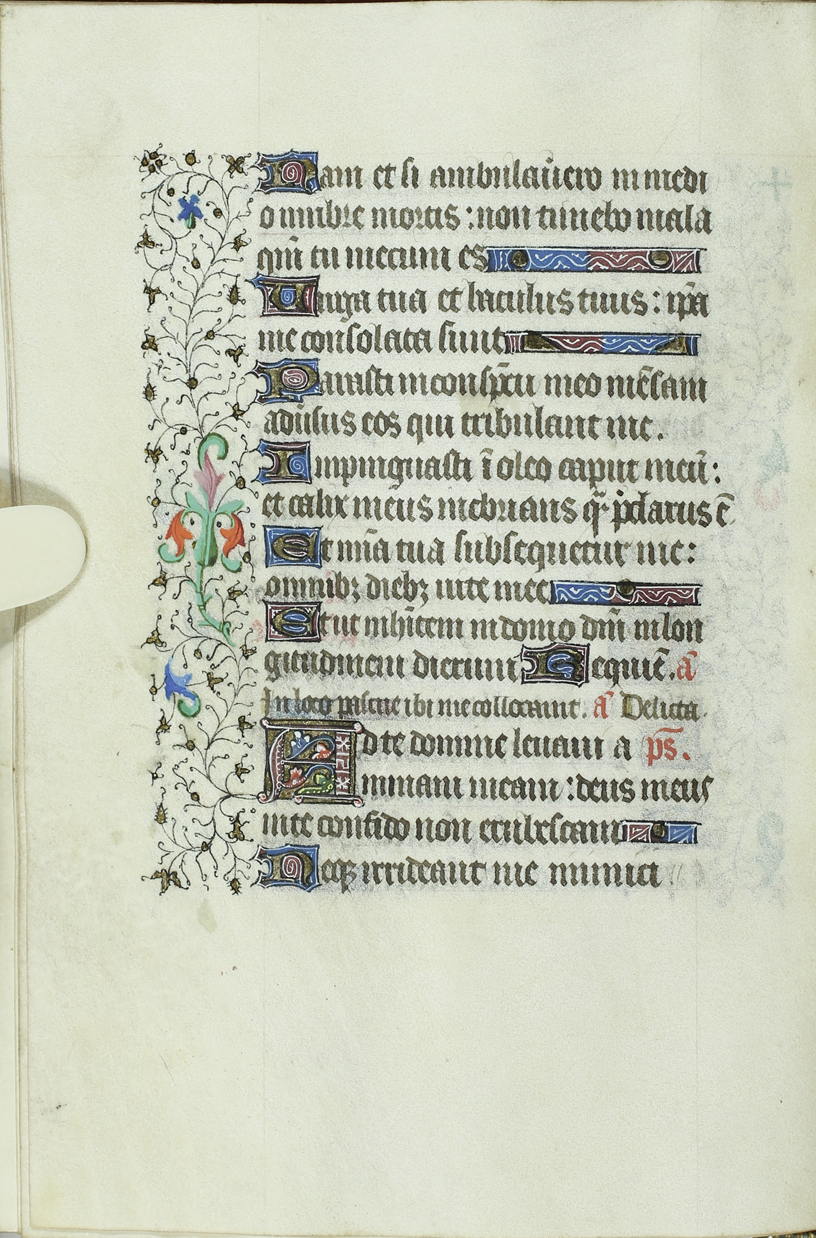 Nam et si ambulauero in medi
o umbre mortis : non timebo mala
qm̄ tu mecum es
Uirga tua et baculus tuus : ip̄a
me consolata sunt
Parasti in conspc̄tu meo mēsam
adūsus eos qui tribulant me.
Inpinguasti ī oleo caput meū :
et calix meus inebrians q̄ p̄clarus ē
Et mīa tua subsequetur me :
omnibꝫ diebꝫ uite mee
Et ut inhītem in domo dn̄i in lon
gitudinem dierum Requiē. an̄
In loco pascue ibi me collocauit. an̄ Delicta.
Ad te domine leuaui a ps̄.
nimam meam : deus meus
in te confido non erubescam
Neqꝫ irrideant me inimici